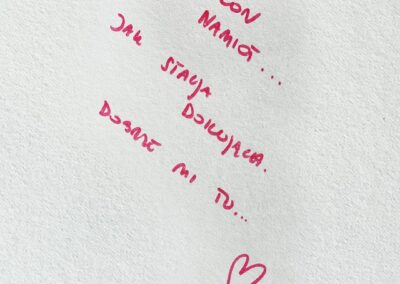 CON
NAMIOT...
JAK STACJA
DOKUJĄCA.
DOBRZE MI TU...